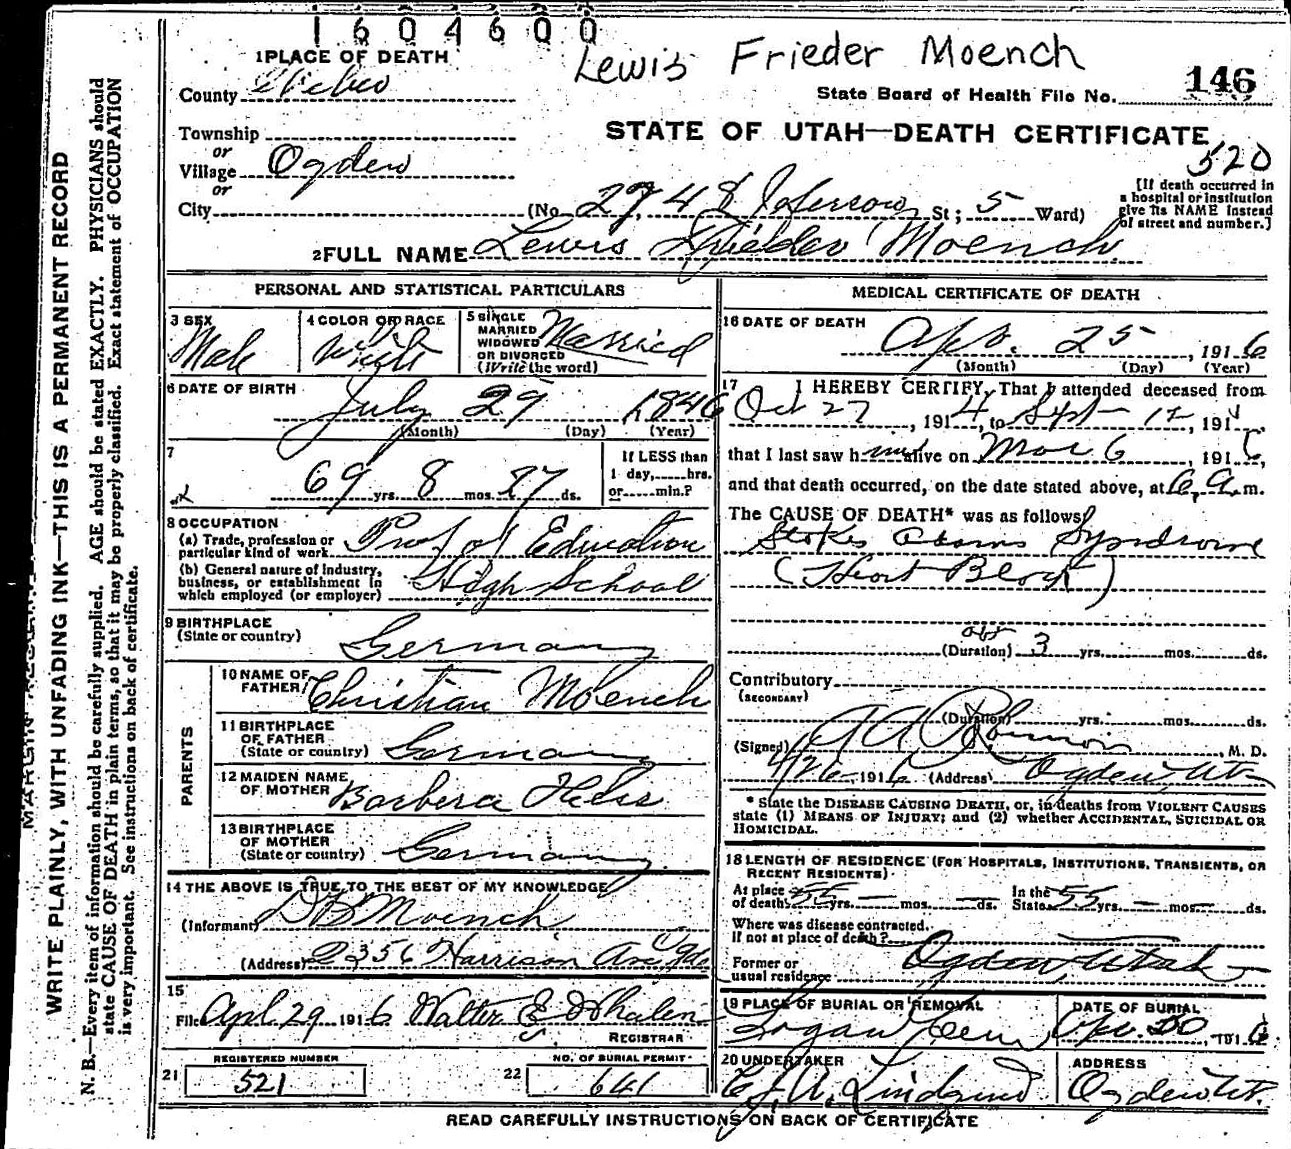 1604600
Lewis Frieder Moench
1 PLACE OF DEATH
County Weber
State Board of Health File No. 146
STATE OF UTAH—DEATH CERTIFICATE
520
Township
or
Village Ogden
or
City
(No. 2748 Jefferson St; 5 Ward)
[If death occurred in a hospital or institution give its NAME instead of street and number.]
2 FULL NAME Lewis Frieder Moench
PERSONAL AND STATISTICAL PARTICULARS
3 SEX
Male
4 COLOR OR RACE
White
5 SINGLE MARRIED WIDOWED OR DIVORCED (Write the word)
Married
6 DATE OF BIRTH
July 29 1846
(Month) (Day) (Year)
7
69 yrs. 8 mos. 27 ds.
If LESS than 1 day, hrs. or min.?
8 OCCUPATION
(a) Trade, profession or particular kind of work Prof of Education
(b) General nature of Industry, business, or establishment in which employed (or employer) High School
9 BIRTHPLACE
(State or country) Germany
PARENTS
10 NAME OF FATHER Christian Moench
11 BIRTHPLACE OF FATHER (State or country) Germany
12 MAIDEN NAME OF MOTHER Barbera
13 BIRTHPLACE OF MOTHER (State or country) Germany
14 THE ABOVE IS TRUE TO THE BEST OF MY KNOWLEDGE
(Informant) D B Moench
(Address) 2356 Harrison Ave
15
Filed Apl. 29 1916 Walter E Whalen
REGISTRAR
REGISTERED NUMBER
21 521
NO. OF BURIAL PERMIT
22 641
MEDICAL CERTIFICATE OF DEATH
16 DATE OF DEATH
Apr. 25, 1916
(Month) (Day) (Year)
17 I HEREBY CERTIFY, That I attended deceased from
Oct 27, 1914, to Sept 12, 191
that I last saw him alive on Mar 6, 191
and that death occurred, on the date stated above, at 6 a.m.
The CAUSE OF DEATH* was as follows:
Stokes Adams Syndrome
(Heart Block)
abt
(Duration) 3 yrs. mos. ds.
Contributory
(SECONDARY)
(Duration) yrs. mos. ds.
(Signed) M. D.
4/26 1916 (Address) Ogden Utah
* State the DISEASE CAUSING DEATH, or, in deaths from VIOLENT CAUSES
state (1) MEANS OF INJURY; and (2) whether ACCIDENTAL, SUICIDAL OR
HOMICIDAL.
18 LENGTH OF RESIDENCE (FOR HOSPITALS, INSTITUTIONS, TRANSIENTS, OR
RECENT RESIDENTS)
At place of death 55 yrs. — mos. — ds. In the State 55 yrs. — mos. — ds.
Where was disease contracted,
If not at place of death?
Former or usual residence Ogden, Utah
19 PLACE OF BURIAL OR REMOVAL
Logan Cem
DATE OF BURIAL
191
20 UNDERTAKER
Lindquist
ADDRESS
Ogden Ut.
READ CAREFULLY INSTRUCTIONS ON BACK OF CERTIFICATE
WRITE PLAINLY, WITH UNFADING INK—THIS IS A PERMANENT RECORD
N. B.—Every item of information should be carefully supplied. AGE should be stated EXACTLY. PHYSICIANS should
state CAUSE OF DEATH in plain terms, so that it may be properly classified. Exact statement of OCCUPATION
is very important. See instructions on back of certificate.